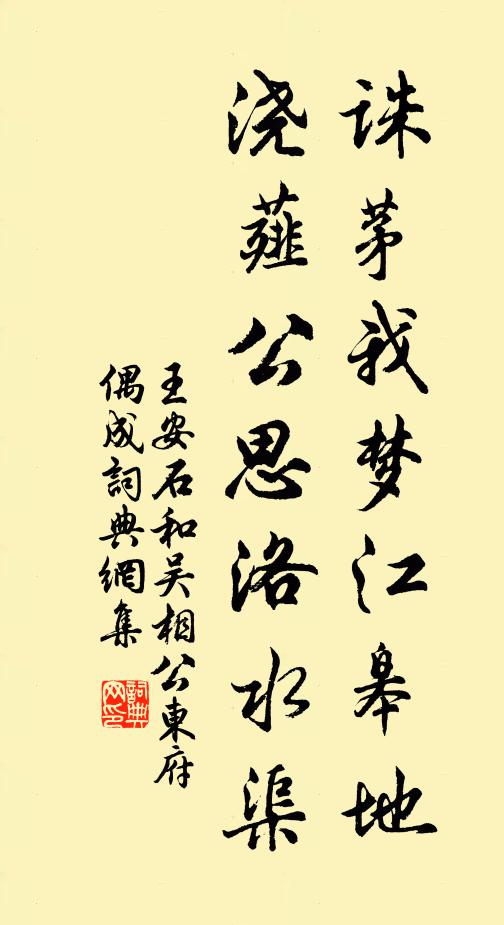 诛茅我梦江皋地
浇薤公思洛水渠
王安石和吴相公東府
偶成詞典網集
詞典
网印